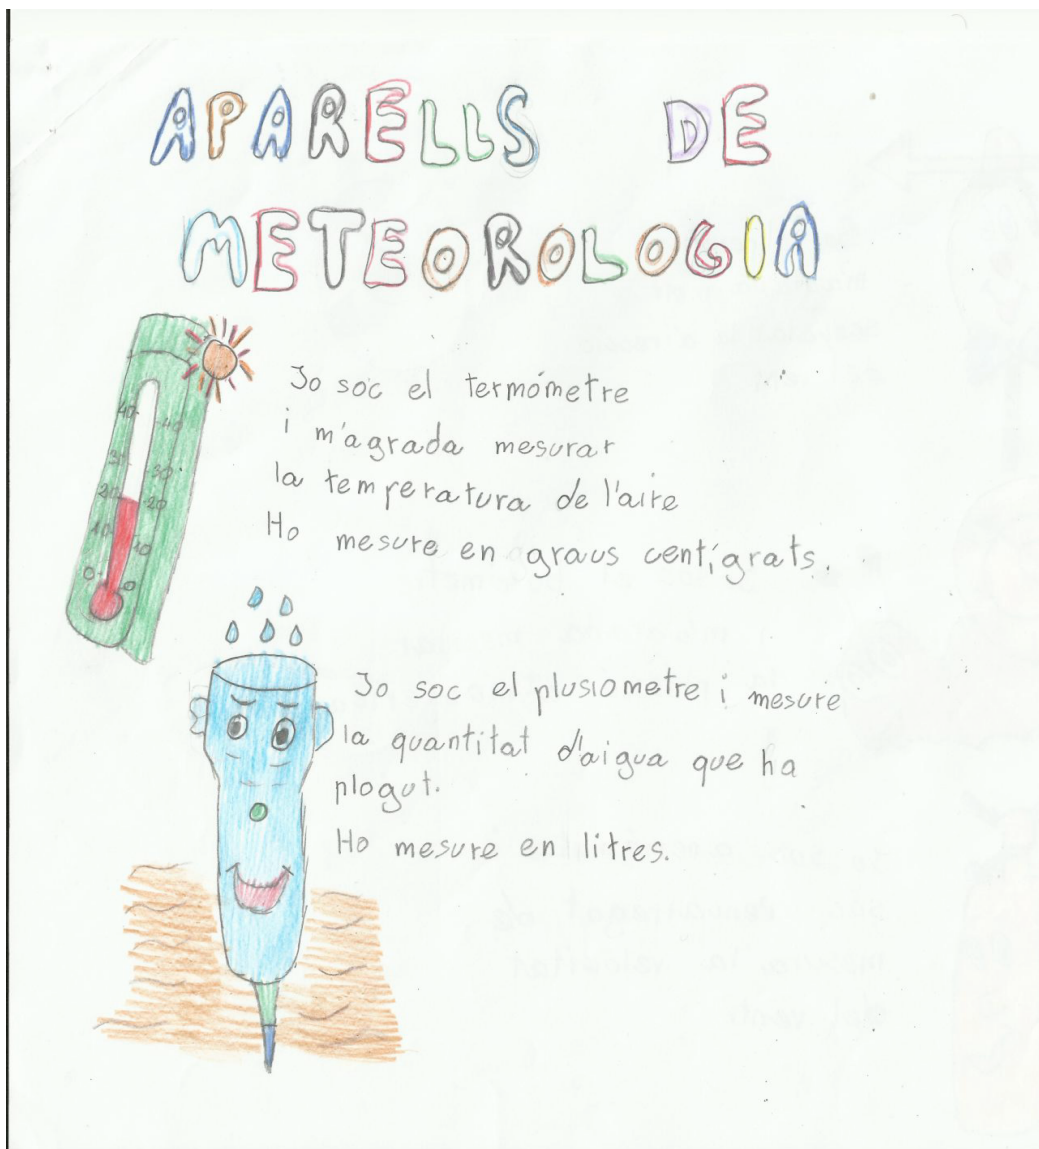 APARELLS DE
METEOROLOGIA
Jo soc el termómetre
i m'agrada mesurar
la temperatura de l'aire
Ho mesure en graus centígrats.
40
40
31
30
20
20
10
10
0
0
Jo soc el plusiometre i mesure
la quantitat d'aigua que ha
plogut.
Ho mesure en litres.